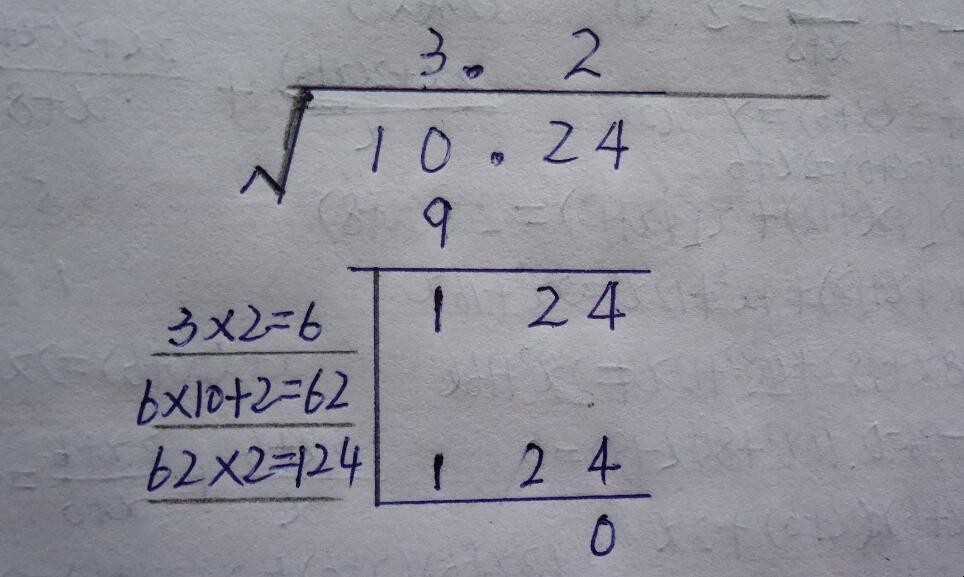 3. 2
√10.24
9
1 24
3×2=6
6×10+2=62
62×2=124
1 24
0